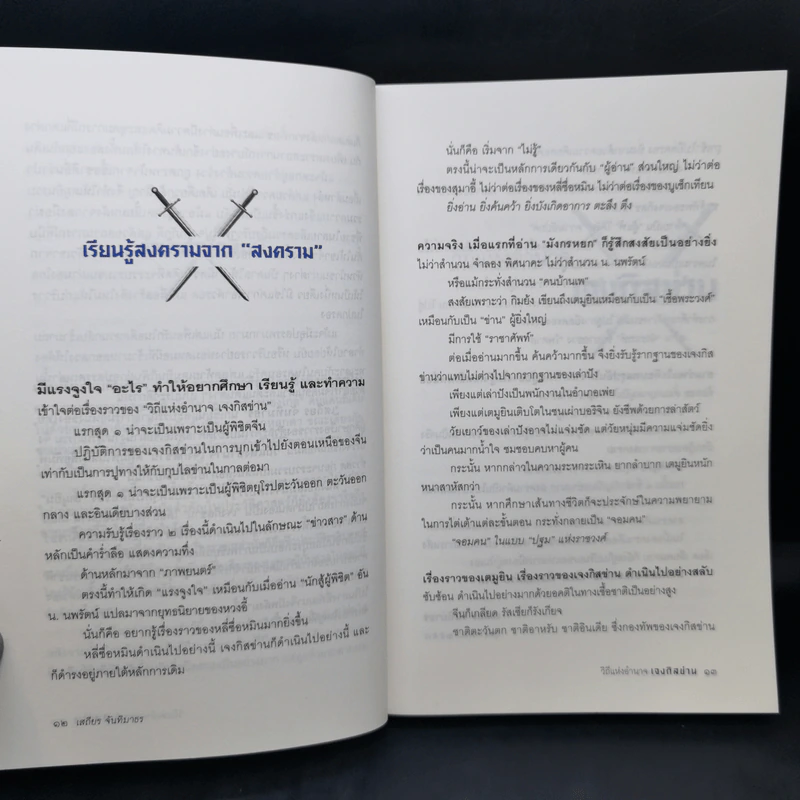 เรียนรู้สงครามจาก “สงคราม”
มีแรงจูงใจ “อะไร” ทำให้อยากศึกษา เรียนรู้ และทำความ
เข้าใจต่อเรื่องราวของ “วิถีแห่งอำนาจ เจงกิสข่าน”
แรกสุด ๑ น่าจะเป็นเพราะเป็นผู้พิชิตจีน
ปฏิบัติการของเจงกิสข่านในการบุกเข้าไปยังตอนเหนือของจีน
เท่ากับเป็นการปูทางให้กับกุบไลข่านในกาลต่อมา
แรกสุด ๑ น่าจะเป็นเพราะเป็นผู้พิชิตยุโรปตะวันออก ตะวันออก
กลาง และอินเดียบางส่วน
ความรับรู้เรื่องราว ๒ เรื่องนี้ดำเนินไปในลักษณะ “ข่าวสาร” ด้าน
หลักเป็นคำร่ำลือ แสดงความทึ่ง
ด้านหลักมาจาก “ภาพยนตร์”
ตรงนี้ทำให้เกิด “แรงจูงใจ” เหมือนกับเมื่ออ่าน “นักสู้ผู้พิชิต” อัน
น. นพรัตน์ แปลมาจากยุทธนิยายของหวงอี้
นั่นก็คือ อยากรู้เรื่องราวของหลี่ซื่อหมินมากยิ่งขึ้น
หลี่ซื่อหมินดำเนินไปอย่างนี้ เจงกิสข่านก็ดำเนินไปอย่างนี้ และ
ก็ดำรงอยู่ภายใต้หลักการเดิม
๑๒ เสถียร จันทิมาธร
นั่นก็คือ เริ่มจาก “ไม่รู้”
ตรงนี้น่าจะเป็นหลักการเดียวกันกับ “ผู้อ่าน” ส่วนใหญ่ ไม่ว่าต่อ
เรื่องของสุมาอี้ ไม่ว่าต่อเรื่องของหลี่ซื่อหมิน ไม่ว่าต่อเรื่องของบูเช็กเทียน
ยิ่งอ่าน ยิ่งค้นคว้า ยิ่งบังเกิดอาการ ตะลึง ตึง
ความจริง เมื่อแรกที่อ่าน “มังกรหยก” ก็รู้สึกสงสัยเป็นอย่างยิ่ง
ไม่ว่าสำนวน จำลอง พิศนาคะ ไม่ว่าสำนวน น. นพรัตน์
หรือแม้กระทั่งสำนวน “คนบ้านเพ”
สงสัยเพราะว่า กิมย้ง เขียนถึงเตมูยินเหมือนกับเป็น “เชื้อพระวงศ์”
เหมือนกับเป็น “ข่าน” ผู้ยิ่งใหญ่
มีการใช้ “ราชาศัพท์”
ต่อเมื่ออ่านมากขึ้น ค้นคว้ามากขึ้น จึงยิ่งรับรู้รากฐานของเจงกิส
ข่านว่าแทบไม่ต่างไปจากรากฐานของเล่าปัง
เพียงแต่เล่าปังเป็นพนักงานในอำเภอเพ่ย
เพียงแต่เตมูยินเติบโตในชนเผ่าบอริจิน ยังชีพด้วยการล่าสัตว์
วัยเยาว์ของเล่าปังอาจไม่แจ่มชัด แต่วัยหนุ่มมีความแจ่มชัดยิ่ง
ว่าเป็นคนมากน้ำใจ ชมชอบคบหาผู้คน
กระนั้น หากกล่าวในความระหกระเหิน ยากลำบาก เตมูยินหนัก
หนาสาหัสกว่า
กระนั้น หากศึกษาเส้นทางชีวิตก็จะประจักษ์ในความพยายาม
ในการไต่เต้าแต่ละขั้นตอน กระทั่งกลายเป็น “จอมคน”
“จอมคน” ในแบบ “ปฐม” แห่งราชวงศ์
เรื่องราวของเตมูยิน เรื่องราวของเจงกิสข่าน ดำเนินไปอย่างสลับ
ซับซ้อน ดำเนินไปอย่างมากด้วยอคติในทางเชื้อชาติเป็นอย่างสูง
จีนก็เกลียด รัสเซียก็รังเกียจ
ชาติตะวันตก ชาติอาหรับ ชาติอินเดีย ซึ่งกองทัพของเจงกิสข่าน
วิถีแห่งอำนาจ เจงกิสข่าน ๑๓